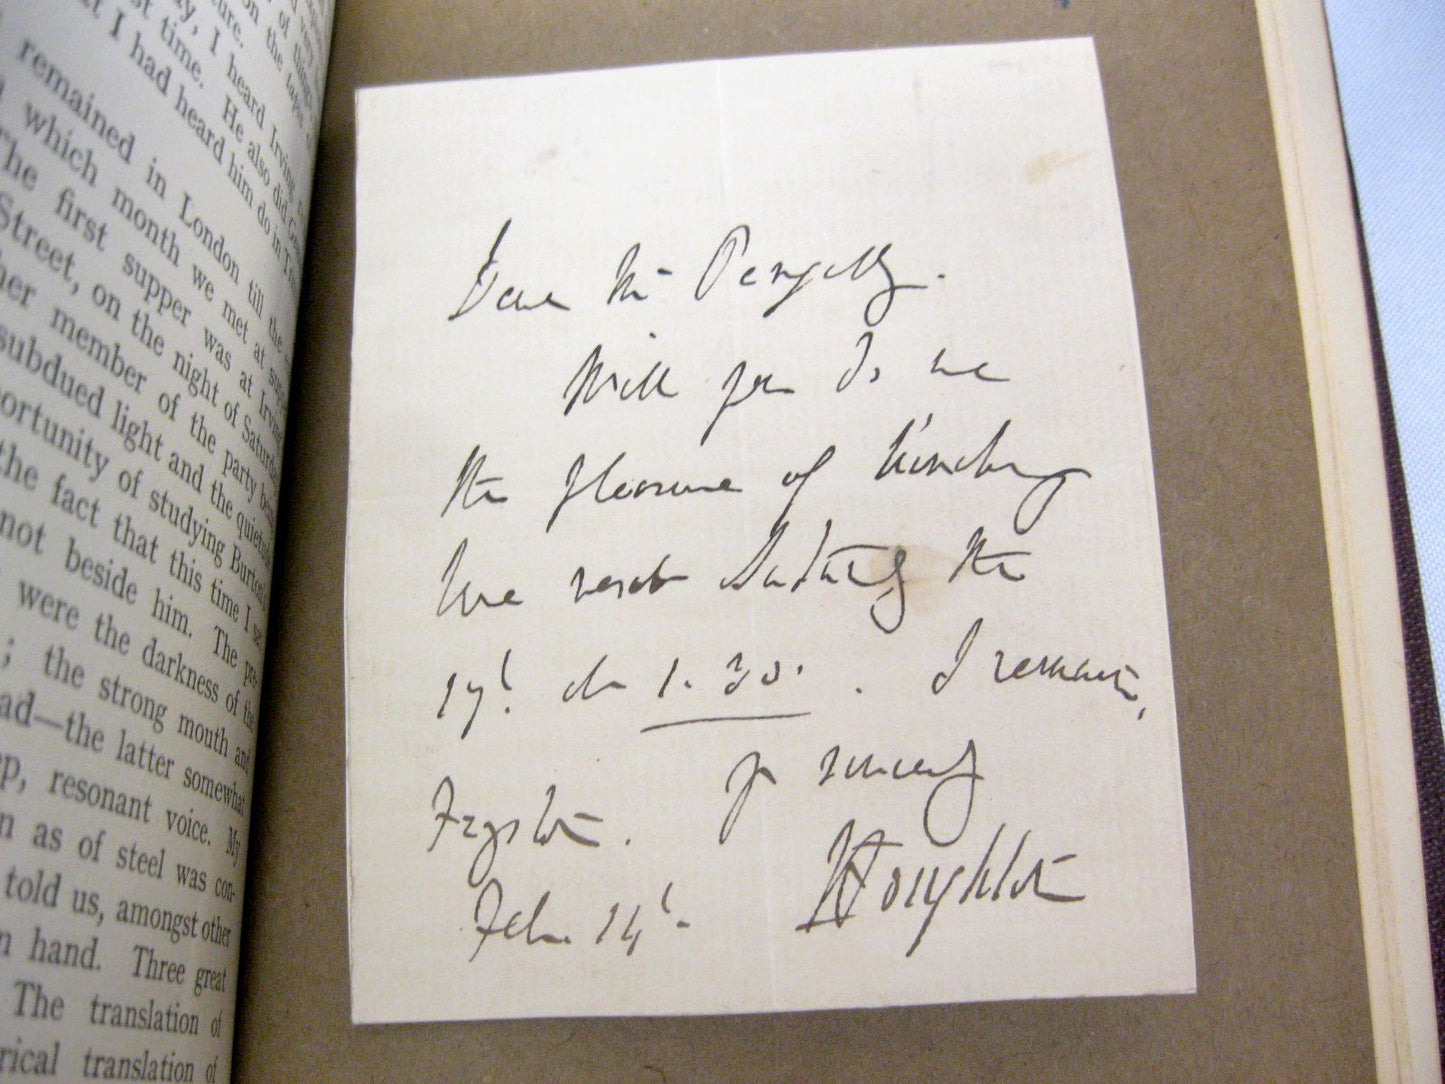 very
of things
ture. on the tapis
y, I heard Irving
st time. He also did
I had heard him do in
remained in London till the
which month we met at
The first supper was at Irving
Street, on the night of Saturday
her member of the party
subdued light and the
portunity of studying Burton
the fact that this time I
not beside him. The
were the darkness of the
; the strong mouth and
ad—the latter somewhat
ep, resonant voice. My
n as of steel was con-
told us, amongst other
n hand. Three great
The translation of
rical translation of
Dear Mr Pengelly.
Will you do me
the pleasure of lunching
here next Saturday the
17t at 1.30. . I remain,
yr sincerely
Fryston. Houghton
Feb. 14t